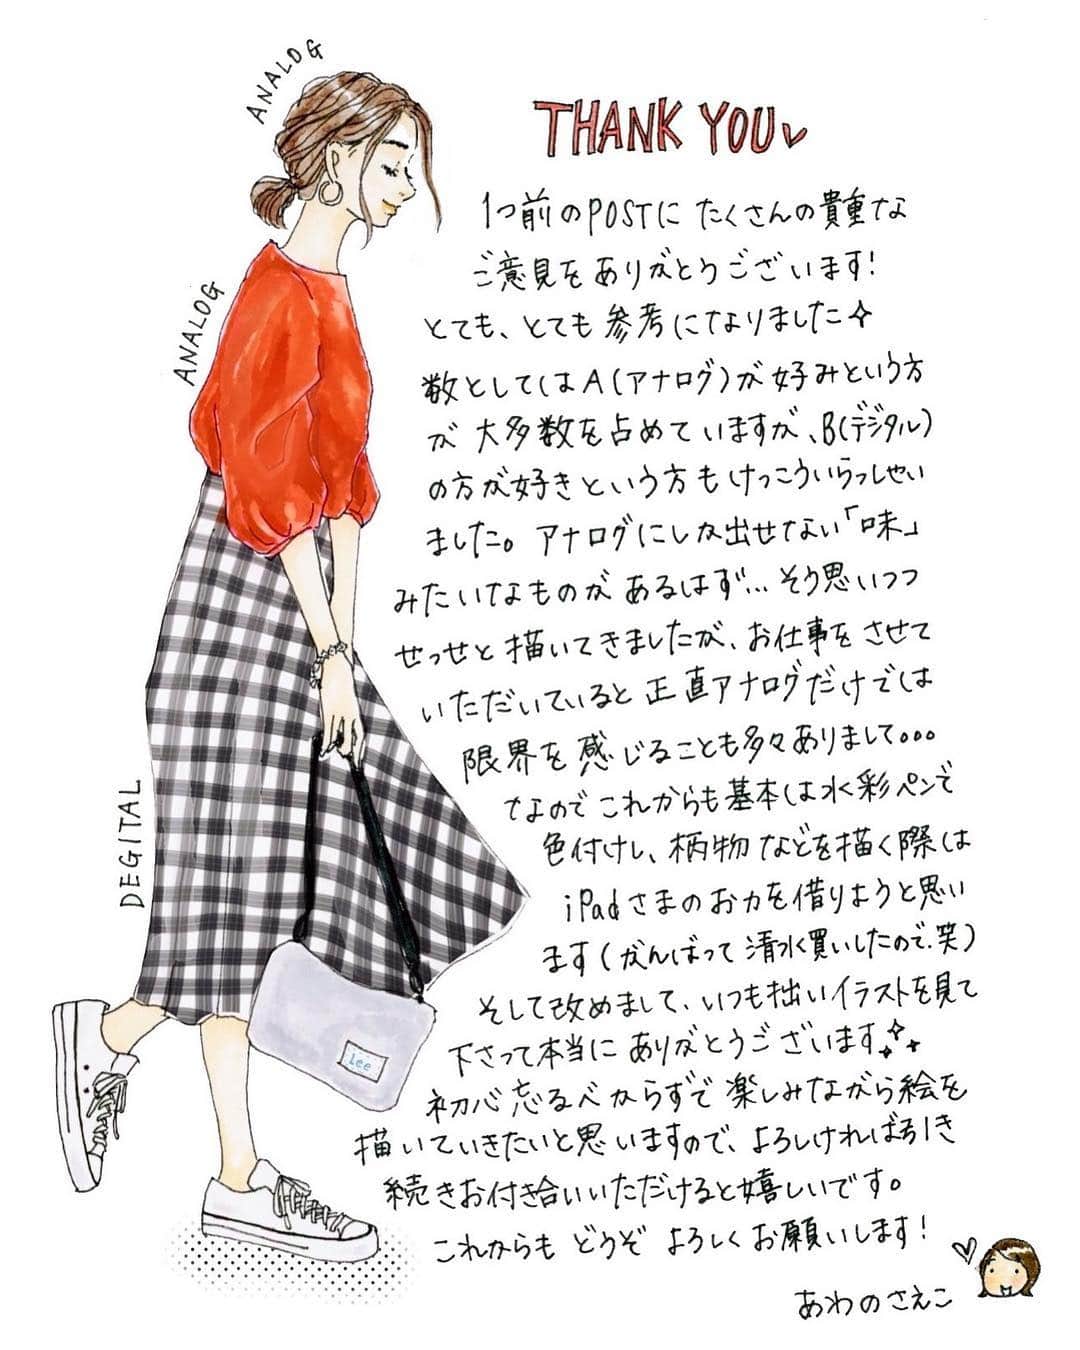 ANALOG
THANK YOU♡
1つ前のPOSTに たくさんの貴重な
ご意見をありがとうございます!
とても、とても参考になりました✧
ANALOG
数としてはA(アナログ)が好みという方
が大多数を占めていますが、B(デジタル)
の方が好きという方もけっこういらっしゃい
ました。アナログにしか出せない「味」
みたいなものがあるはず…そう思いつつ
せっせと描いてきましたが、お仕事をさせて
いただいていると正直アナログだけでは
限界を感じることも多々ありまして。。。
なのでこれからも基本は水彩ペンで
DEGITAL
色付けし、柄物などを描く際は
iPadさまのお力を借りようと思い
ます(がんばって清水買いしたので.笑)
そして改めまして、いつも拙いイラストを見て
下さって本当にありがとうございます✧
Lee
初心忘るべからずで楽しみながら絵を
描いていきたいと思いますので、よろしければ引き
続きお付き合いいただけると嬉しいです。
これからも どうぞ よろしくお願いします!
あわのさえこ